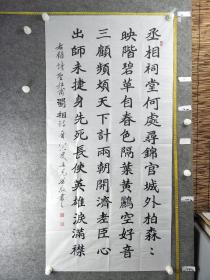 丞相祠堂何處尋錦官城外柏森〻
映階碧草自春色隔葉黃鸝空好音
三顧頻煩天下計兩朝開濟老臣心
出師未捷身先死長使英雄淚滿襟
右錄詩聖杜甫蜀相詩一首